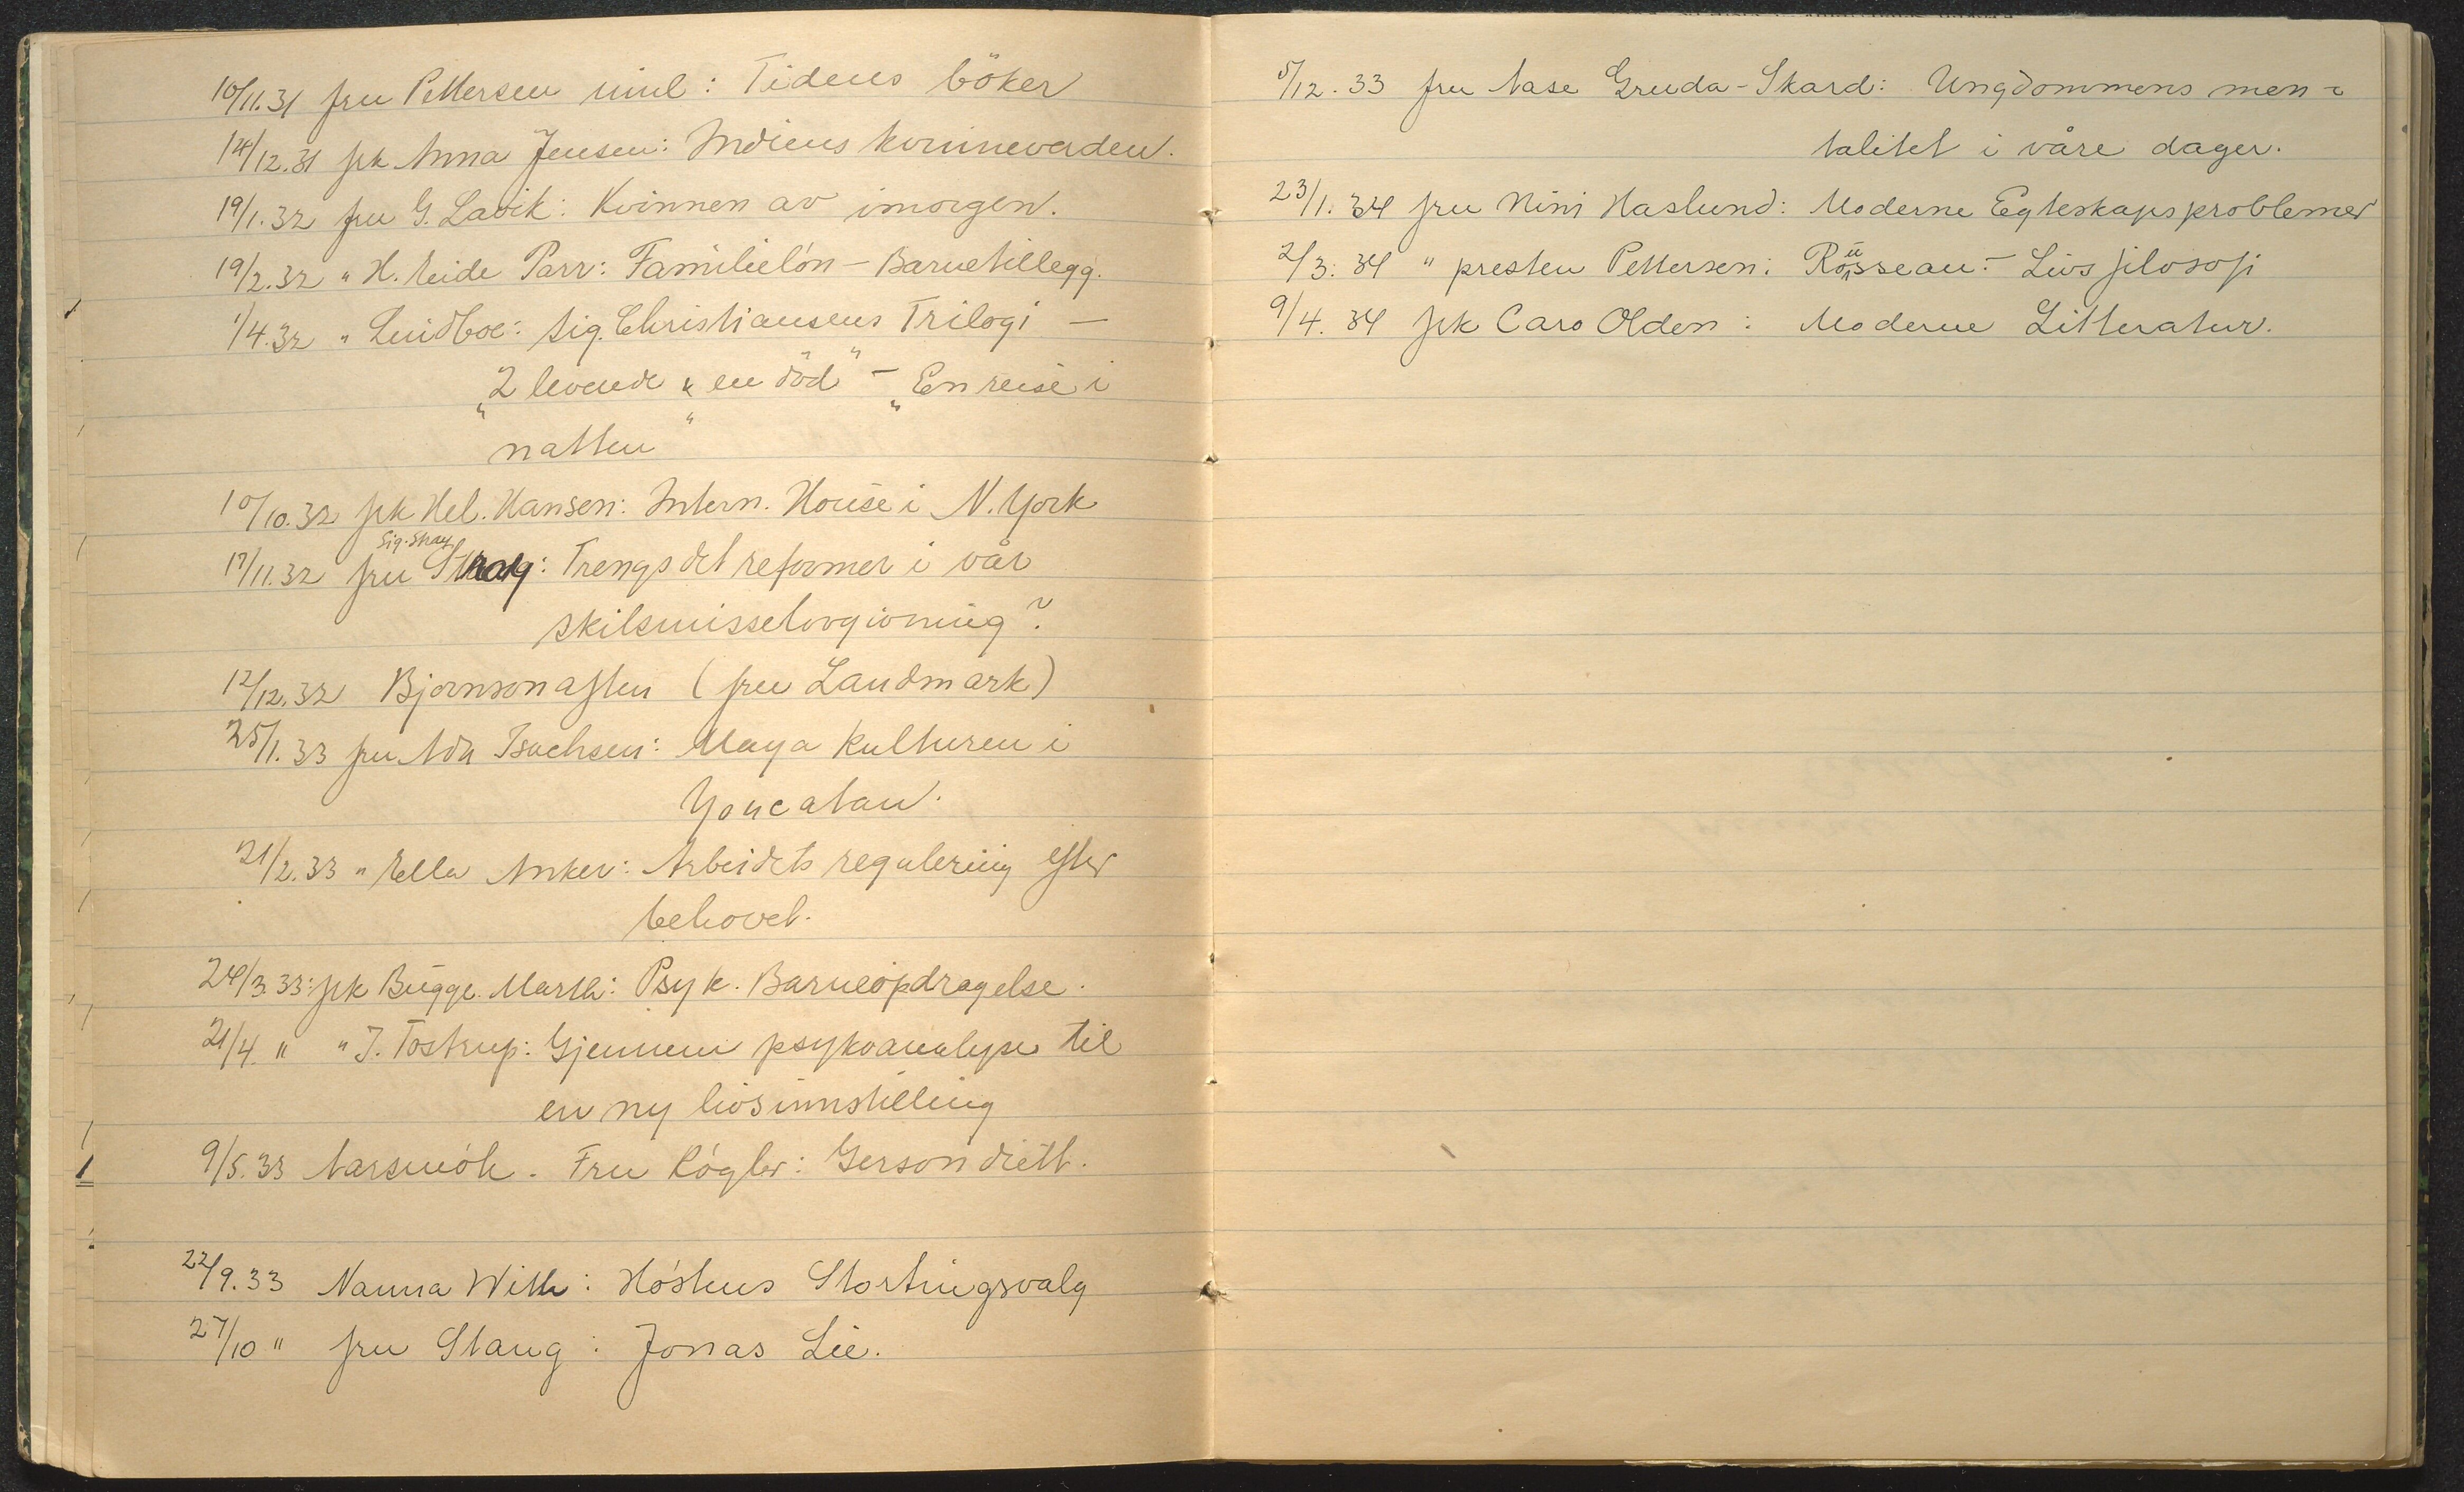 10/11.31 fru Pettersen miul: Tidens böker
14/12.31 frk Anna Jensen: Indiens kvinneverden.
19/1.32 fru G. Lavik: Kvinnen av imorgen.
19/2.32 " H. Eide Parr: Familielón - Barnetillegg.
1/4.32 " Lindboe: Sig. Christiansens Trilogi -
"2 levende & en död" - "En reise i
natten"
10/10.32 frk Hel. Hansen: Intern. House i N. York
Sig. Skay
17/11.32 fru : Trengs det reformer i vår
skilsmisselovgivning?
12/12.32 Bjørnsonaften (fru Landmark)
25/1.33 fru Ada Isachsen: Maya kulturen i
Youcatan.
21/2.33 " Ella Anker: Arbeidets regulering efter
behovet.
24/3.33: frk Bugge. Marth: Psyk. Barneopdragelse.
21/4. " " J. Tostrup: Gjennem psykoanalyse til
en ny livsinnstilling
9/5.33 Aarsmöte. Fru Kógler: Gerson diett.
22/9.33 Nanna With: Hóstens Stortingsvalg
27/10 " fru Stang: Jonas Lie.
5/12.33 fru Aase Gruda-Skard: Ungdommens men-
talitet i våre dager.
23/1.34 fru Nini Haslund: Moderne Egteskapsproblemer
2/3.34 " presten Pettersen: Rousseau - Livsfilosofi
9/4.34 frk Caro Olden: Moderne Litteratur.